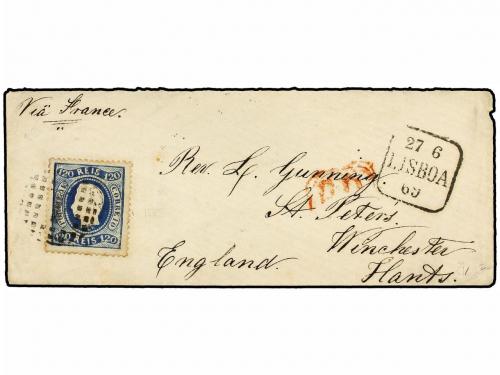 Viâ France.
27 6
LISBOA
69
120 REIS 120
CORREIO
120 REIS 120
Rev. L. Gunning
St. Peters,
Winchester
England.
Hants.